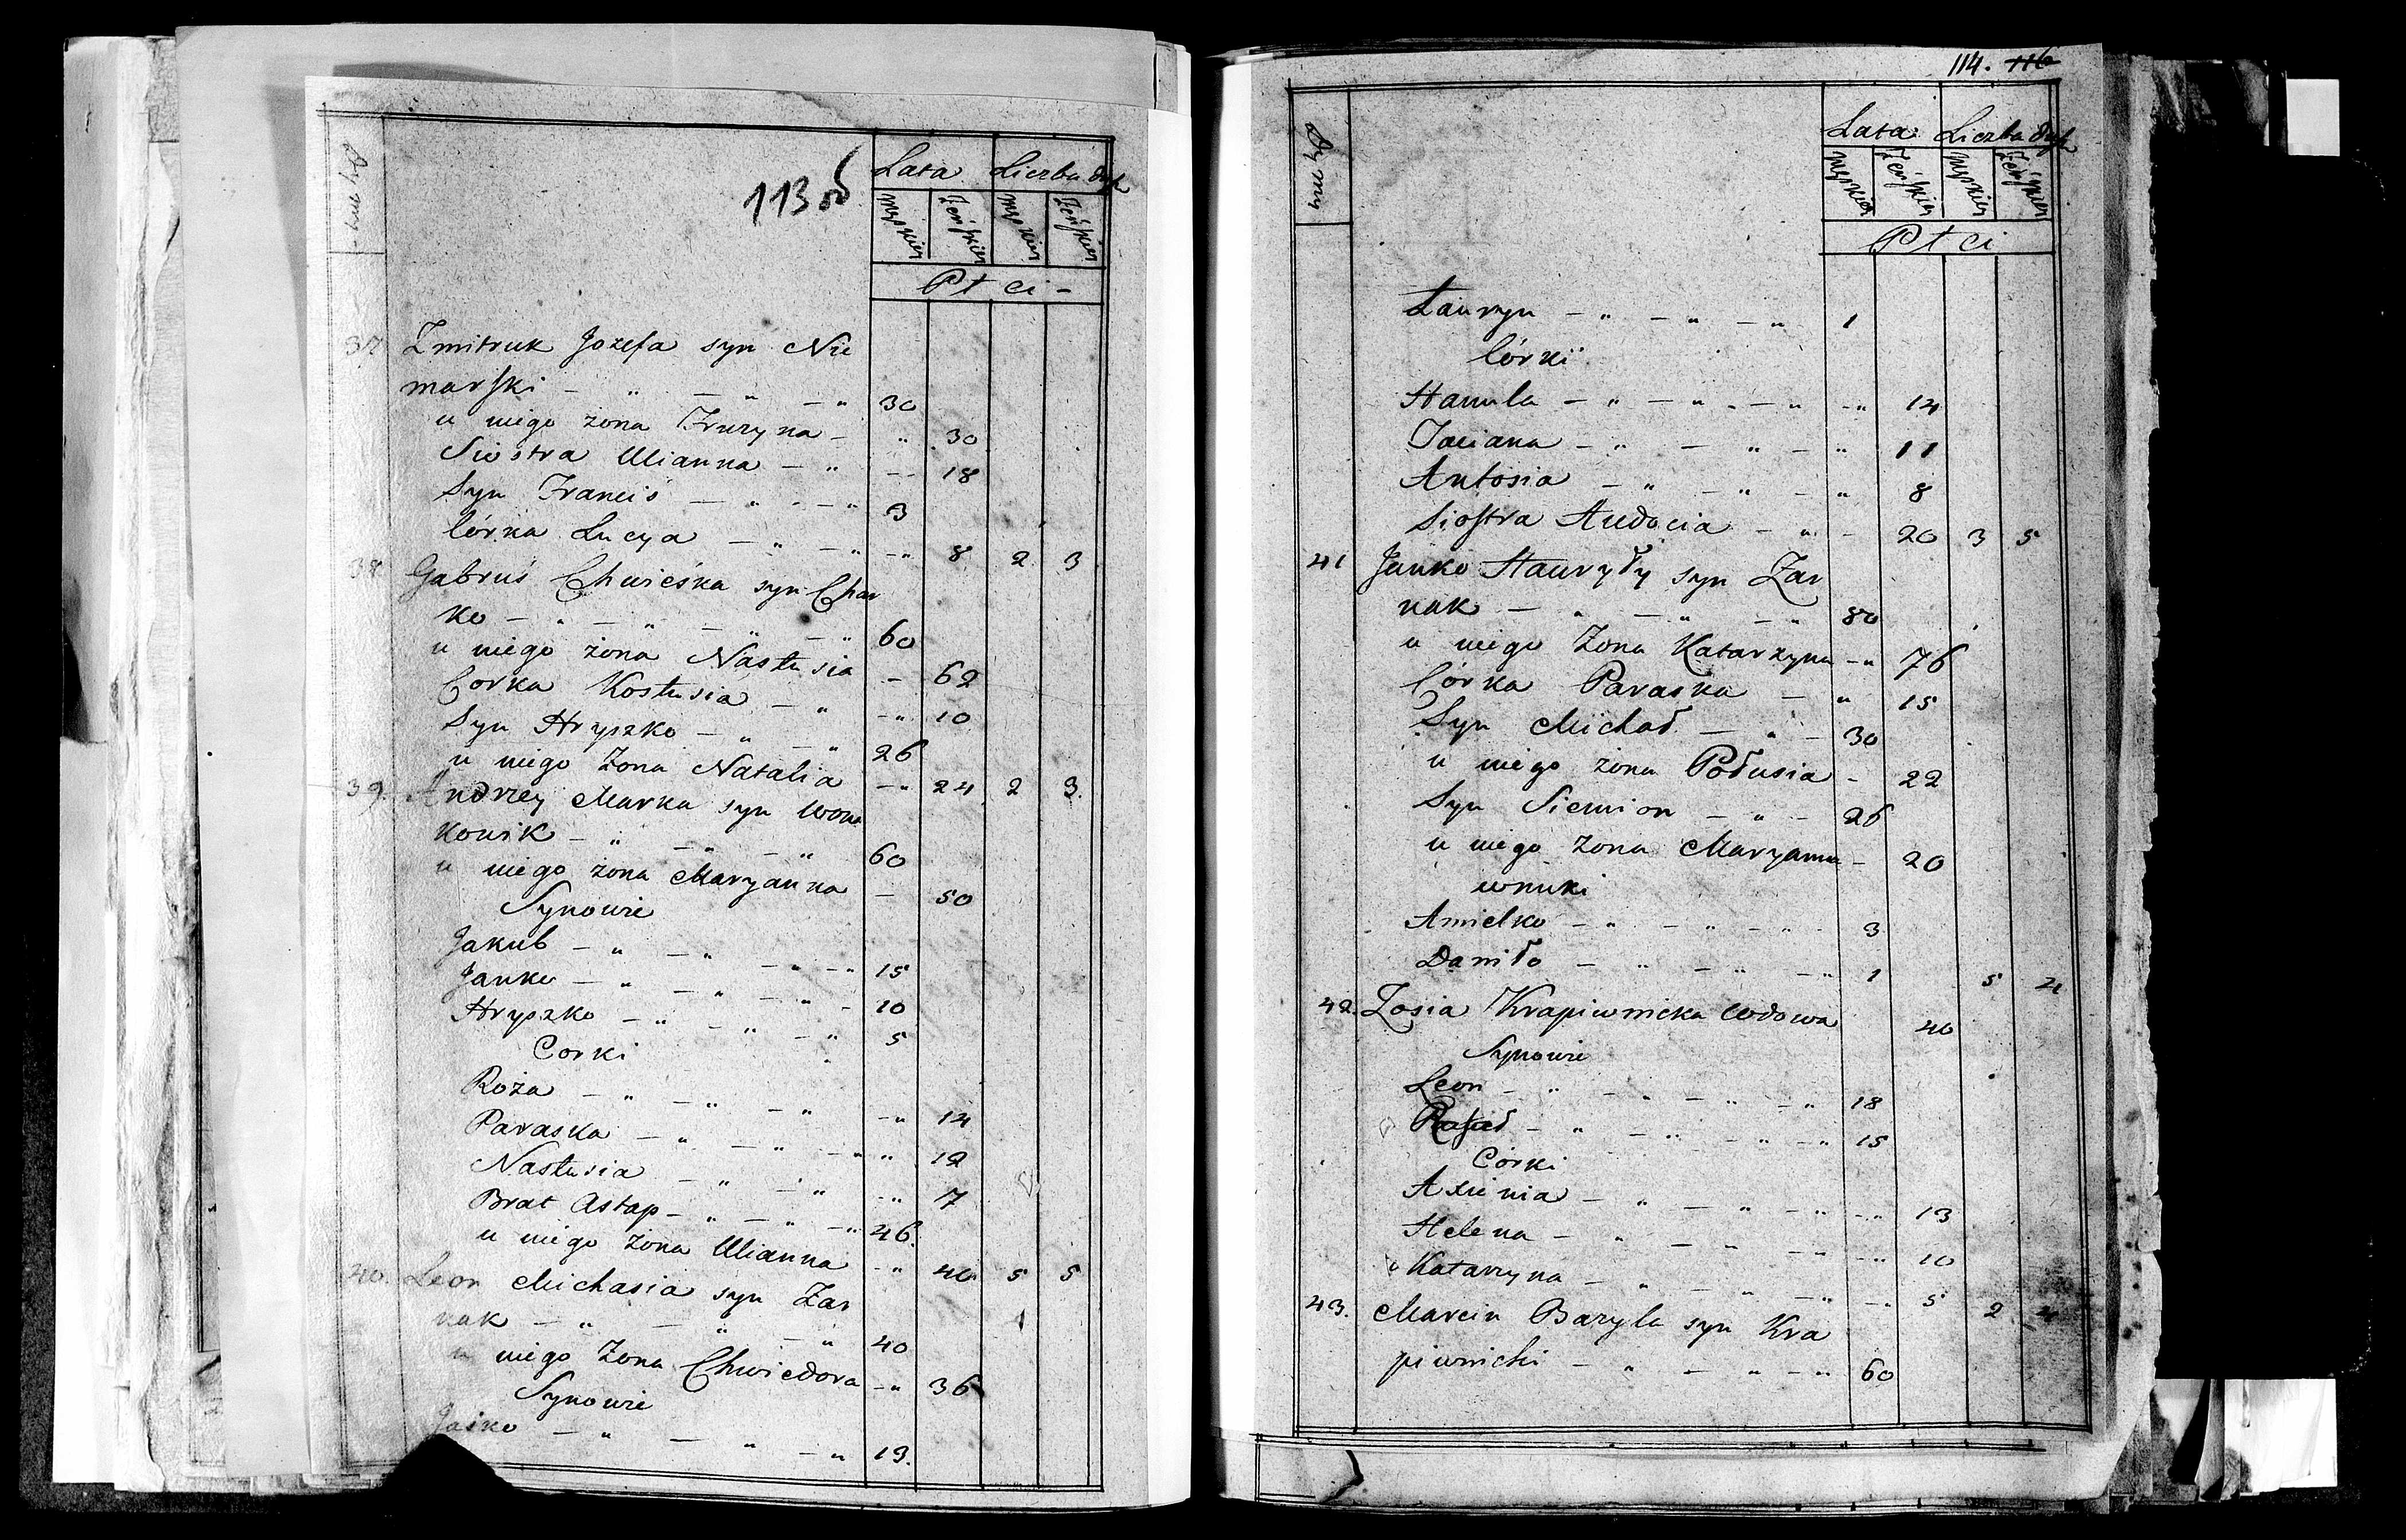 113 об
Dymy
Lata Liczba dusz
męskiey Żeńskiey męskiey Żeńskiey
Płci
37 Zmitruk Jozefa syn Nie
marski - " - " - " 30
u niego żona Fruzyna - " 30
Siostra Ulianna - " - - 18
Syn Franciś - " - " 3
Córka Lucya - " - " - " 8 2 3
38 Gabruś Chwieśka syn Char
ko - " - " - " - " 60
u niego żona Nastusia - 62
Corka Kostusia - " - " 10
Syn Hryszko - " - " 26
u niego Żona Natalia - " 24 2 3.
39. Andrzey Marka syn Woro
konik - " - " - " 60
u niego żona Maryanna - 50
Synowie
Jakub - " - " - " - " 15
Janko - " - " - " - 10
Hryszko - " - " - " 5
Corki
Roża - " - " - " - " 14
Paraska - " - " - " " 12
Nastusia - " - " - " 7
Brat Astap - " - " - " 46.
u niego żona Ulianna - " 40 5 5
40. Leon Michasia syn Żar
nak - " - " - " 40
u niego Żona Chwiedora - " 36
Synowie
Jaśko - " - " - " 13.
114. 116
Dymy
Lata Liczba dusz
męskiey Żeńskiey męskiey Żeńskiey
Płci
Łauryn - " - " - " 1
Córki
Hanula - " - " - " - " 14
Taciana - " - " - " 11
Antosia - " - " - " 8
Siostra Audocia - " - 20 3 5
41 Janko Hauryły syn Żar
nak - " - " - " 80
u niego Żona Katarzyna - " 76
Córka Paraska - " 15
Syn Michał - " - 30
u niego żona Połusia - 22
Syn Siemion - " - 26
u niego żona Maryanna - 20
wnuki
Amielko - " - " - " - 3
Daniło - " - " - " 1 5 4
42. Zosia Krapiwnicka Wdowa 40
Synowie
Leon - " - " - " - " 18
Rafał - " - " - " - " 15
Córki
Axienia - " - " - " - " 13
Helena - " - " - " - " 10
Katarzyna - " - " - " - " 5 2 4
43. Marcin Bazyla syn Kra
piwnicki - " - " - " 60